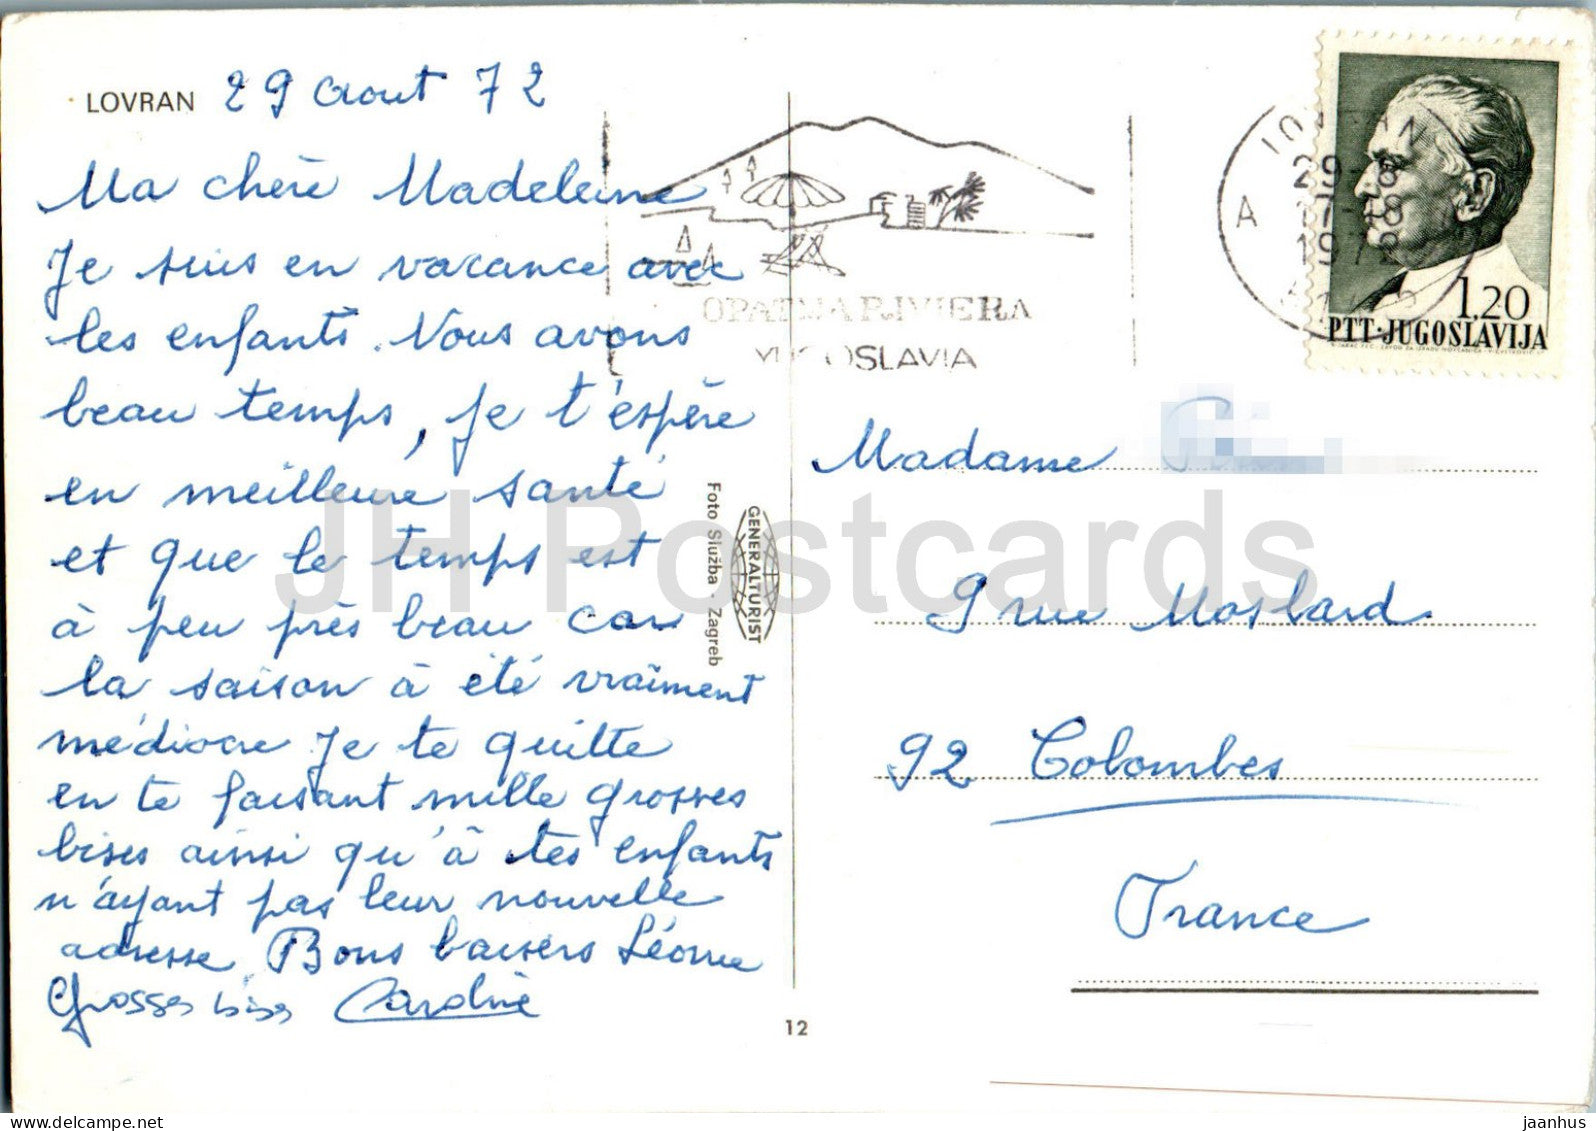 LOVRAN 29 Aout 72
Ma chère Madeleine
Je suis en vacance avec
les enfants. Nous avons
beau temps, je t'éspère
en meilleure santé
et que le temps est
à peu près beau car
la saison à été vraiment
médiocre Je te quitte
en te faisant mille grosses
bises ainsi qu'à tes enfants
n'ayant pas leur nouvelle
adresse. Bons baisers Léonie
Grosses bises Caroline
OPATIJA RIVIERA
YUGOSLAVIA
LOVRAN
29-8
17-18
1972
A
1,20
PTT·JUGOSLAVIJA
GENERALTURIST
Foto Služba · Zagreb
Madame
9 rue Moslard
92 Colombes
France
12
JH Postcards
www.delcampe.net
jaanhus